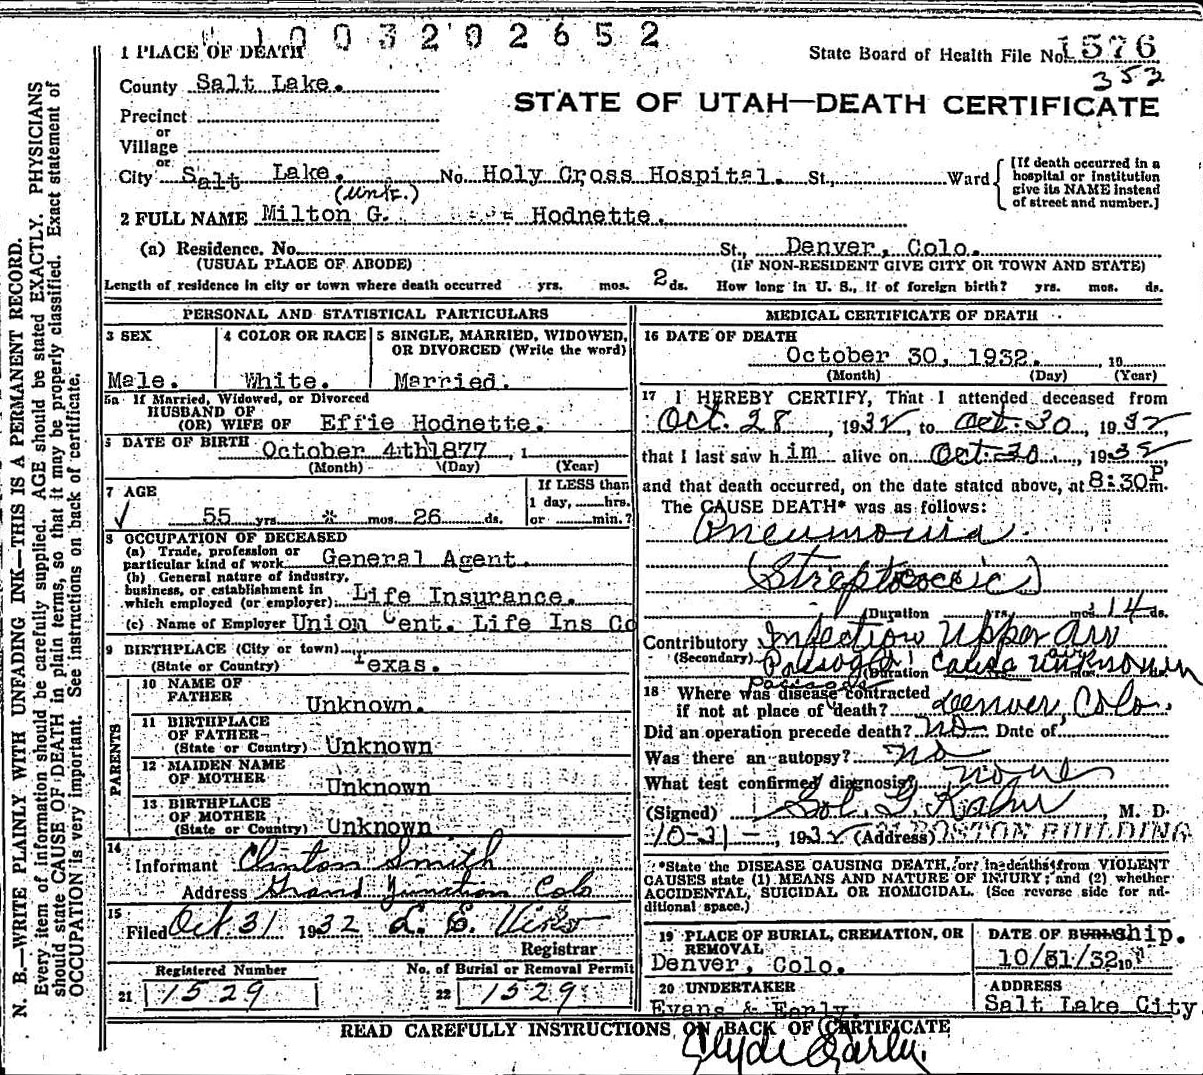 1003202652
1 PLACE OF DEATH
State Board of Health File No. 1576
352
County Salt Lake.
STATE OF UTAH—DEATH CERTIFICATE
Precinct
or
Village
or
City Salt Lake. No. Holy Cross Hospital. St., Ward
[If death occurred in a hospital or institution give its NAME instead of street and number.]
(Unk.)
2 FULL NAME Milton G. Hodnette.
(a) Residence. No. St., Denver, Colo.
(USUAL PLACE OF ABODE) (IF NON-RESIDENT GIVE CITY OR TOWN AND STATE)
Length of residence in city or town where death occurred yrs. mos. 2 ds. How long in U. S., if of foreign birth? yrs. mos. ds.
N. B.—WRITE PLAINLY WITH UNFADING INK—THIS IS A PERMANENT RECORD.
Every item of information should be carefully supplied. AGE should be stated EXACTLY. PHYSICIANS
should state CAUSE OF DEATH in plain terms, so that it may be properly classified. Exact statement of
OCCUPATION is very important. See instructions on back of certificate.
PERSONAL AND STATISTICAL PARTICULARS
3 SEX
Male.
4 COLOR OR RACE
White.
5 SINGLE, MARRIED, WIDOWED,
OR DIVORCED (Write the word)
Married.
5a If Married, Widowed, or Divorced
HUSBAND OF
(OR) WIFE OF Effie Hodnette.
DATE OF BIRTH October 4th 1877, 1
(Month) (Day) (Year)
7 AGE
55 yrs. * mos. 26 ds.
If LESS than
1 day, hrs.
or min.?
8 OCCUPATION OF DECEASED
(a) Trade, profession or
particular kind of work General Agent.
(b) General nature of industry,
business, or establishment in
which employed (or employer) Life Insurance.
(c) Name of Employer Union Cent. Life Ins Co
9 BIRTHPLACE (City or town)
(State or Country) Texas.
PARENTS
10 NAME OF
FATHER Unknown.
11 BIRTHPLACE
OF FATHER
(State or Country) Unknown
12 MAIDEN NAME
OF MOTHER Unknown
13 BIRTHPLACE
OF MOTHER
(State or Country) Unknown
14
Informant Clinton Smith
Address Grand Junction Colo
15
Filed Oct 31 1932 L. E. Viko
Registrar
Registered Number No. of Burial or Removal Permit
21 1529 22 1529
MEDICAL CERTIFICATE OF DEATH
16 DATE OF DEATH
October 30, 1932. 19
(Month) (Day) (Year)
17 I HEREBY CERTIFY, That I attended deceased from
Oct. 28, 1932, to Oct. 30, 1932,
that I last saw him alive on Oct. 30, 1932
and that death occurred, on the date stated above, at 8:30 P m.
The CAUSE DEATH* was as follows:
Pneumonia.
(Streptococcic)
(Duration yrs. mos. 14 ds.
Contributory Infection Upper Air
(Secondary) Passage cause unknown
(Duration
Passage
18 Where was disease contracted
if not at place of death? Denver, Colo.
Did an operation precede death? no Date of
Was there an autopsy? no
What test confirmed diagnosis? none
(Signed) Sol. G. Kahn, M. D.
10-31- 1932 (Address) BOSTON BUILDING
*State the DISEASE CAUSING DEATH, or, in deaths from VIOLENT
CAUSES state (1) MEANS AND NATURE OF INJURY; and (2) whether
ACCIDENTAL, SUICIDAL OR HOMICIDAL. (See reverse side for additional space.)
19 PLACE OF BURIAL, CREMATION, OR
REMOVAL
Denver, Colo.
DATE OF BURIAL ship.
10/31/32 19
20 UNDERTAKER
Evans & Early.
ADDRESS
Salt Lake City
READ CAREFULLY INSTRUCTIONS ON BACK OF CERTIFICATE
Clyde Early.